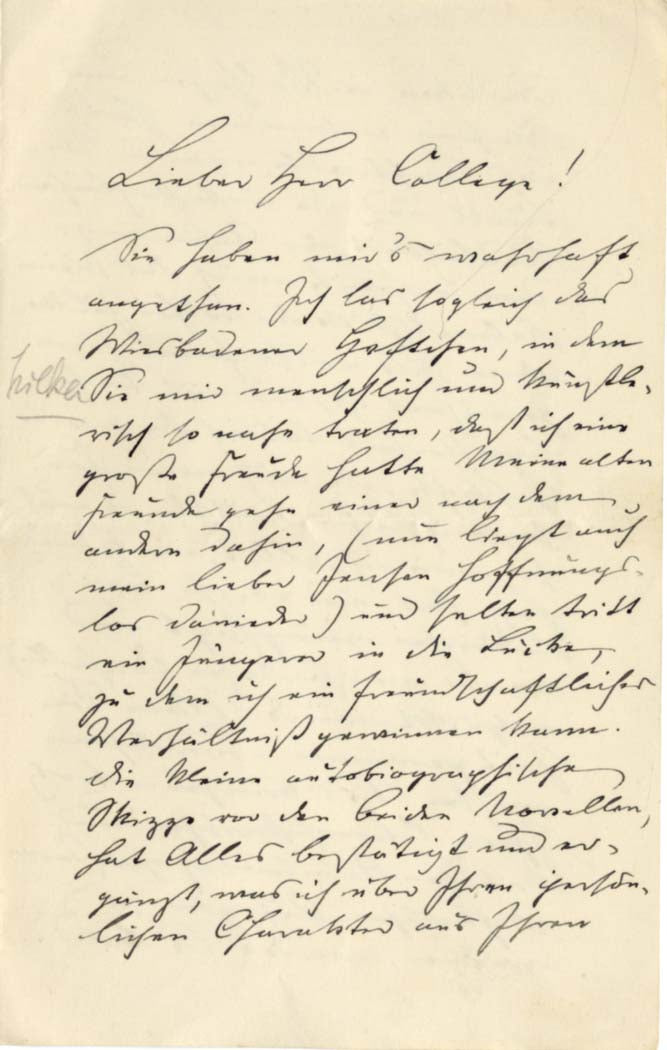 Lieber Herr College!
Sie haben mir's wahrhaft
angethan. Ich las sogleich das
Wiesbadener Heftchen, in dem
Sie mir menschlich und künstle-
risch so nahe traten, daß ich eine
große Freude hatte. Meine alten
Freunde gehn einer nach dem
andern dahin, (nun liegt auch
mein lieber Jensen hoffnungs-
los danieder) und selten tritt
ein Jüngerer in die Lücke,
zu dem ich ein freundschaftliches
Verhältniß gewinnen kann.
Die kleine autobiographische
Skizze vor den beiden Novellen,
hat Alles bestätigt und er-
gänzt, was ich über Ihren persön-
lichen Charakter aus Ihren